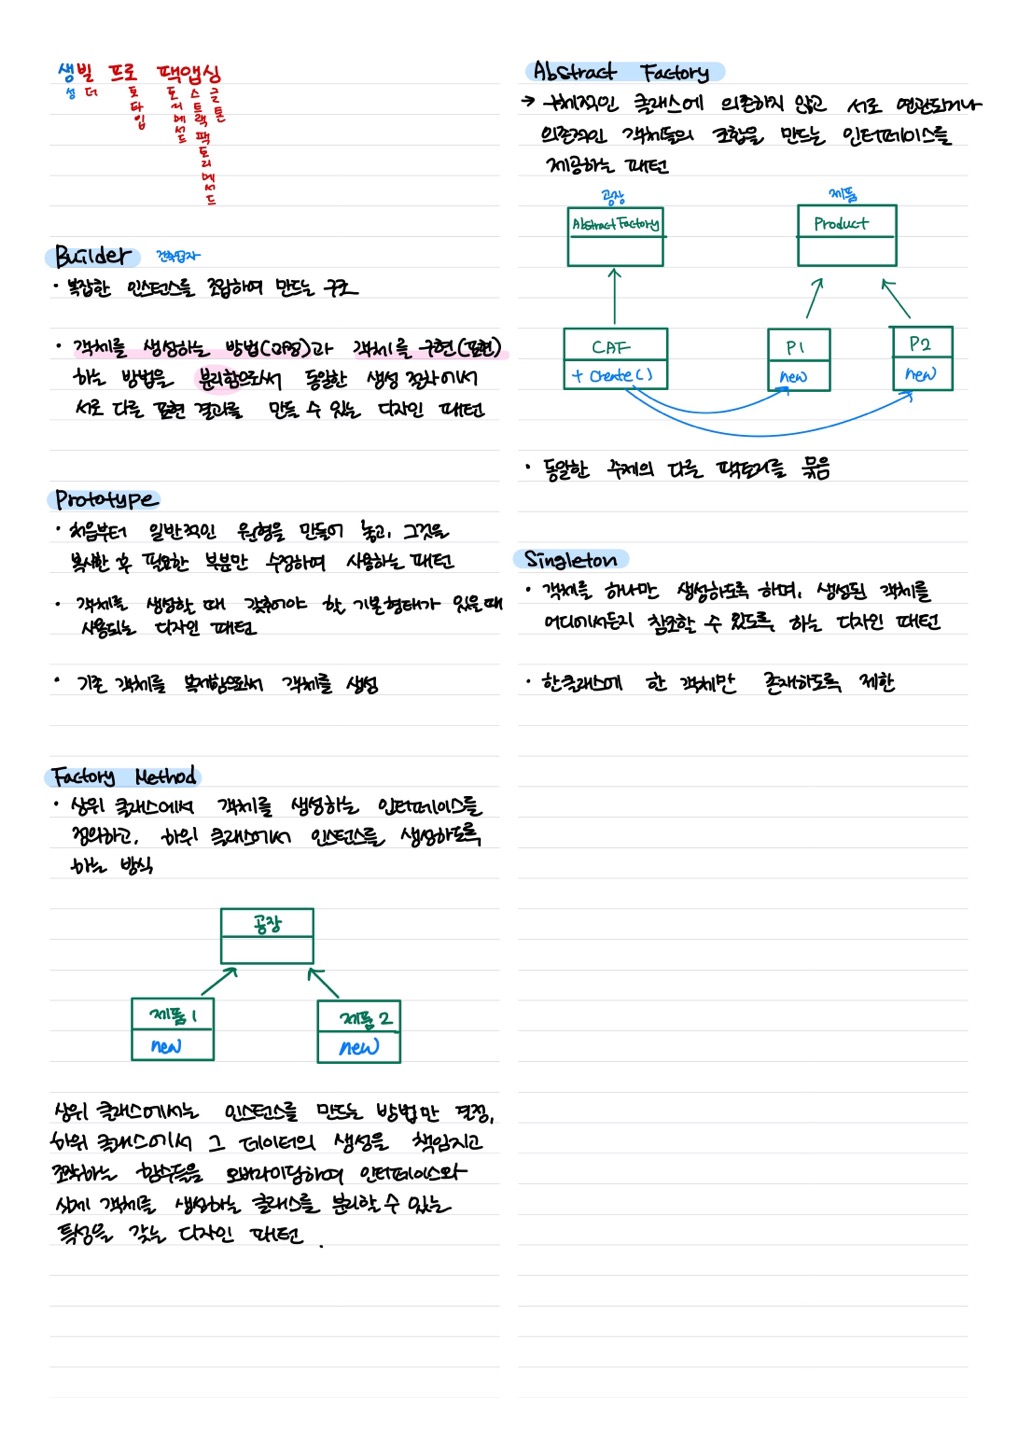 생빌 프로 팩앱싱
성 더 토타입 토리메서드 스트랙팩토리메서드 글톤
Builder 건축업자
· 복잡한 인스턴스를 조합하여 만드는 구조
· 객체를 생성하는 방법(과정)과 객체를 구현(표현)
하는 방법을 분리함으로써 동일한 생성 절차에서
서로 다른 표현 결과를 만들 수 있는 디자인 패턴
Prototype
· 처음부터 일반적인 원형을 만들어 놓고, 그것을
복사한 후 필요한 부분만 수정하여 사용하는 패턴
· 객체를 생성할 때 갖추어야 할 기본형태가 있을때
사용되는 디자인 패턴
· 기존 객체를 복제함으로써 객체를 생성
Factory Method
· 상위 클래스에서 객체를 생성하는 인터페이스를
정의하고, 하위 클래스에서 인스턴스를 생성하도록
하는 방식
공장
제품1 제품2
new new
상위 클래스에서는 인스턴스를 만드는 방법만 결정,
하위 클래스에서 그 데이터의 생성을 책임지고
조작하는 함수들을 오버라이딩하여 인터페이스와
실제 객체를 생성하는 클래스를 분리할 수 있는
특성을 갖는 디자인 패턴.
Abstract Factory
→ 구체적인 클래스에 의존하지 않고 서로 연관되거나
의존적인 객체들의 조합을 만드는 인터페이스를
제공하는 패턴
공장 제품
Abstract Factory Product
CAF P1 P2
+ Create() new new
· 동일한 주제의 다른 팩토리를 묶음
Singleton
· 객체를 하나만 생성하도록 하며, 생성된 객체를
어디에서든지 참조할 수 있도록 하는 디자인 패턴
· 한클래스에 한 객체만 존재하도록 제한